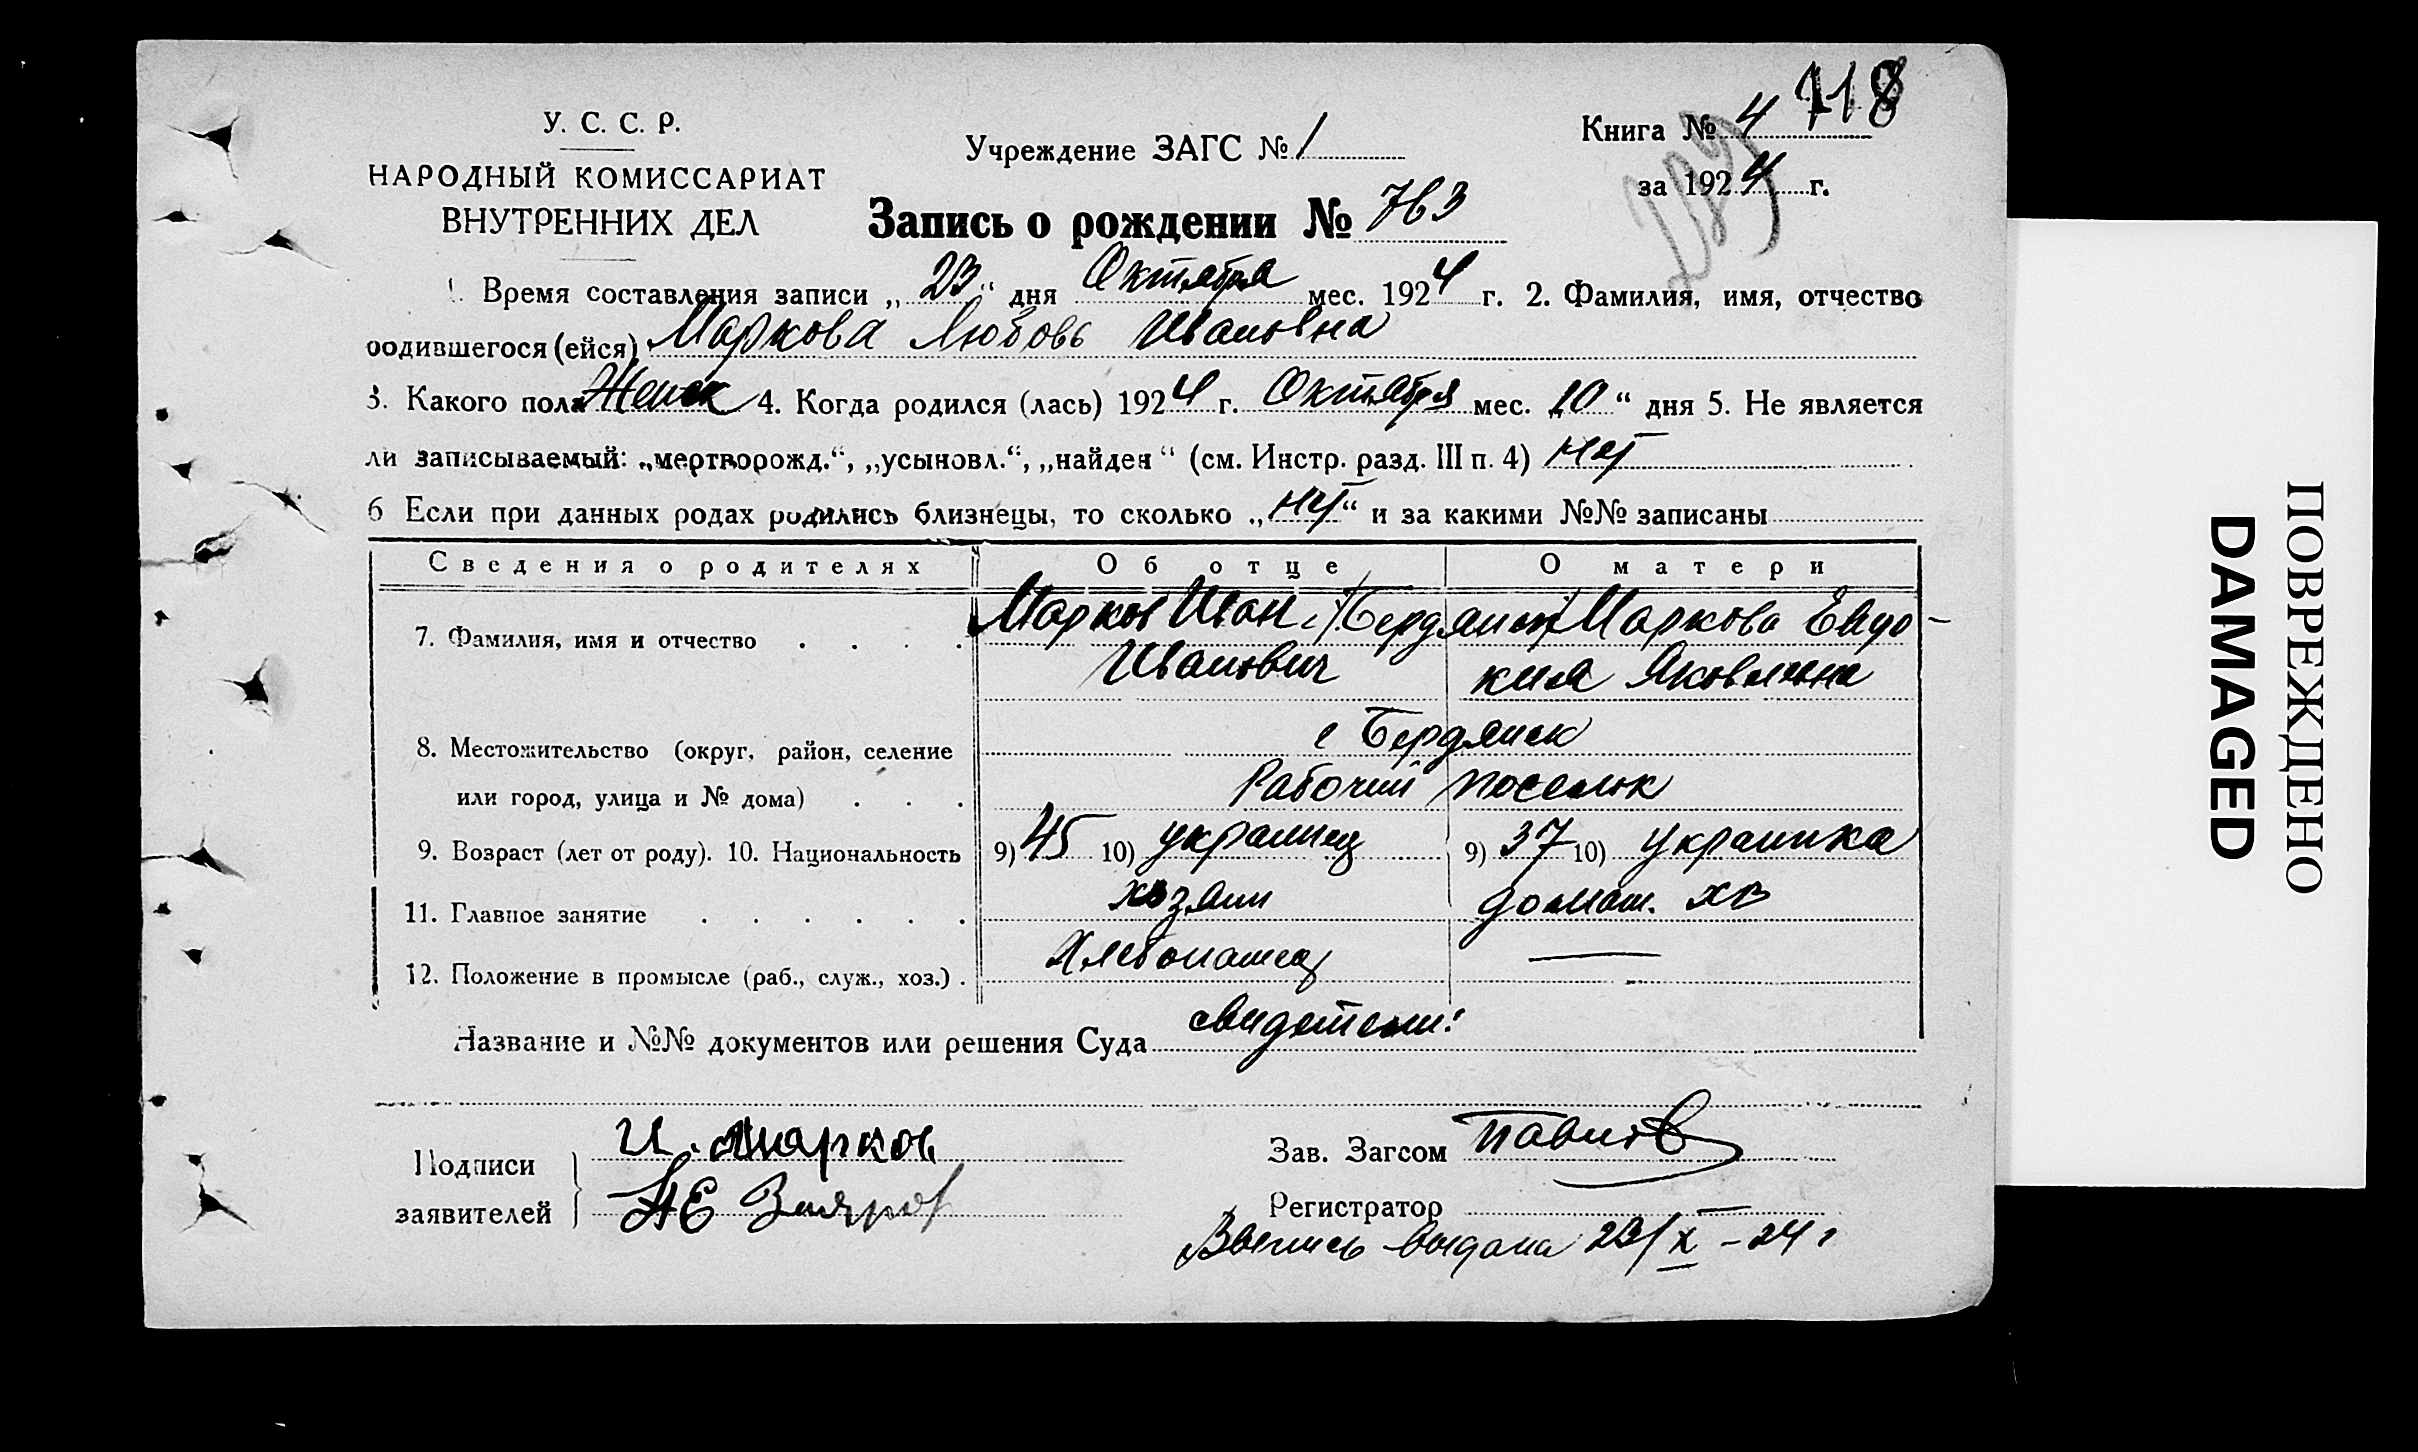 У. С. С. Р.
НАРОДНЫЙ КОМИССАРИАТ
ВНУТРЕННИХ ДЕЛ
Учреждение ЗАГС № 1
Книга № 4 718
за 1924 г.
Запись о рождении № 763
1. Время составления записи „23“ дня Октября мес. 1924 г. 2. Фамилия, имя, отчество
родившегося (ейся) Маркова Любовь Ивановна
3. Какого пола Женск 4. Когда родился (лась) 1924 г. Октября мес. „10“ дня 5. Не является
ли записываемый: „мертворожд.“, „усыновл.“, „найден“ (см. Инстр. разд. III п. 4) нет
6 Если при данных родах родились близнецы, то сколько „нет“ и за какими №№ записаны
Сведения о родителях Об отце О матери
7. Фамилия, имя и отчество Марков Иван Бердянск Маркова Евдо-
Иванович кия Яковлевна
8. Местожительство (округ, район, селение с Бердянск
или город, улица и № дома) Рабочий поселок
9. Возраст (лет от роду). 10. Национальность 9) 45 10) украинец 9) 37 10) украинка
11. Главное занятие хозяин домаш. хв
12. Положение в промысле (раб., служ., хоз.) Хлебопашец —
Название и №№ документов или решения Суда свидетели:
Подписи заявителей И. Марков
АЕ
Зав. Загсом Павлов
Регистратор
выдана 23/X – 24 г
ПОВРЕЖДЕНО
DAMAGED